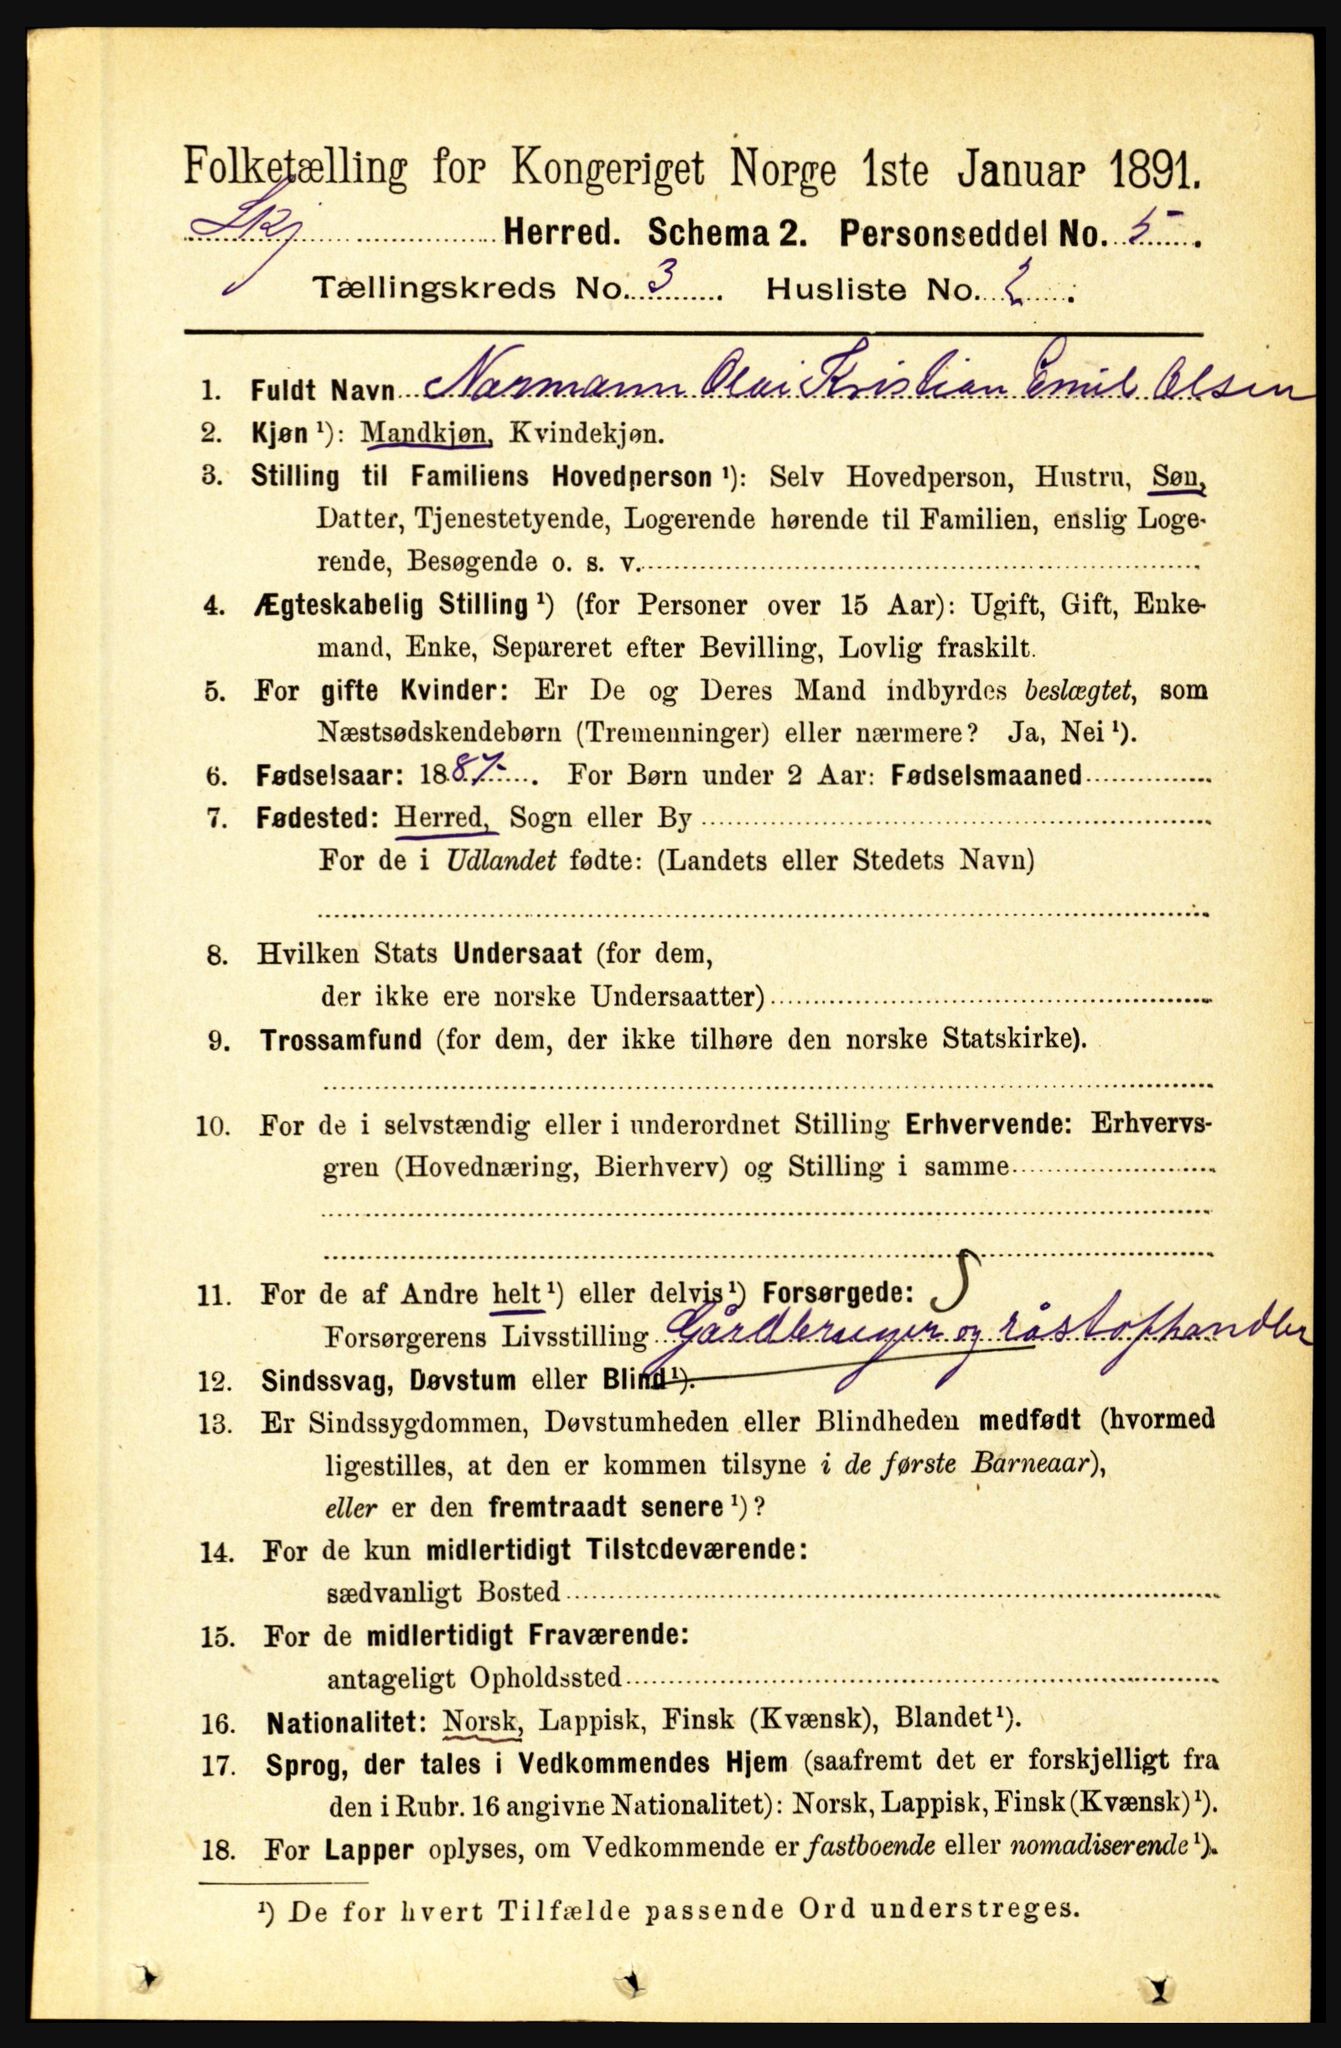 Folketælling for Kongeriget Norge 1ste Januar 1891.
Skj Herred. Schema 2. Personseddel No. 5.
Tællingskreds No. 3. Husliste No. 2.
1. Fuldt Navn Normann Olai Kristian Emil Olsen
2. Kjøn ¹): Mandkjøn, Kvindekjøn.
3. Stilling til Familiens Hovedperson ¹): Selv Hovedperson, Hustru, Søn,
Datter, Tjenestetyende, Logerende hørende til Familien, enslig Loge-
rende, Besøgende o. s. v.
4. Ægteskabelig Stilling ¹) (for Personer over 15 Aar): Ugift, Gift, Enke-
mand, Enke, Separeret efter Bevilling, Lovlig fraskilt.
5. For gifte Kvinder: Er De og Deres Mand indbyrdes beslægtet, som
Næstsødskendebørn (Tremenninger) eller nærmere? Ja, Nei ¹).
6. Fødselsaar: 1887. For Børn under 2 Aar: Fødselsmaaned
7. Fødested: Herred, Sogn eller By
For de i Udlandet fødte: (Landets eller Stedets Navn)
8. Hvilken Stats Undersaat (for dem,
der ikke ere norske Undersaatter)
9. Trossamfund (for dem, der ikke tilhøre den norske Statskirke).
10. For de i selvstændig eller i underordnet Stilling Erhvervende: Erhvervs-
gren (Hovednæring, Bierhverv) og Stilling i samme
11. For de af Andre helt ¹) eller delvis ¹) Forsørgede: S
Forsørgerens Livsstilling Gårdbruger og råstofhandler
12. Sindssvag, Døvstum eller Blind ¹).
13. Er Sindssygdommen, Døvstumheden eller Blindheden medfødt (hvormed
ligestilles, at den er kommen tilsyne i de første Barneaar),
eller er den fremtraadt senere ¹)?
14. For de kun midlertidigt Tilstedeværende:
sædvanligt Bosted
15. For de midlertidigt Fraværende:
antageligt Opholdssted
16. Nationalitet: Norsk, Lappisk, Finsk (Kvænsk), Blandet ¹).
17. Sprog, der tales i Vedkommendes Hjem (saafremt det er forskjelligt fra
den i Rubr. 16 angivne Nationalitet): Norsk, Lappisk, Finsk (Kvænsk) ¹).
18. For Lapper oplyses, om Vedkommende er fastboende eller nomadiserende ¹).
¹) De for hvert Tilfælde passende Ord understreges.